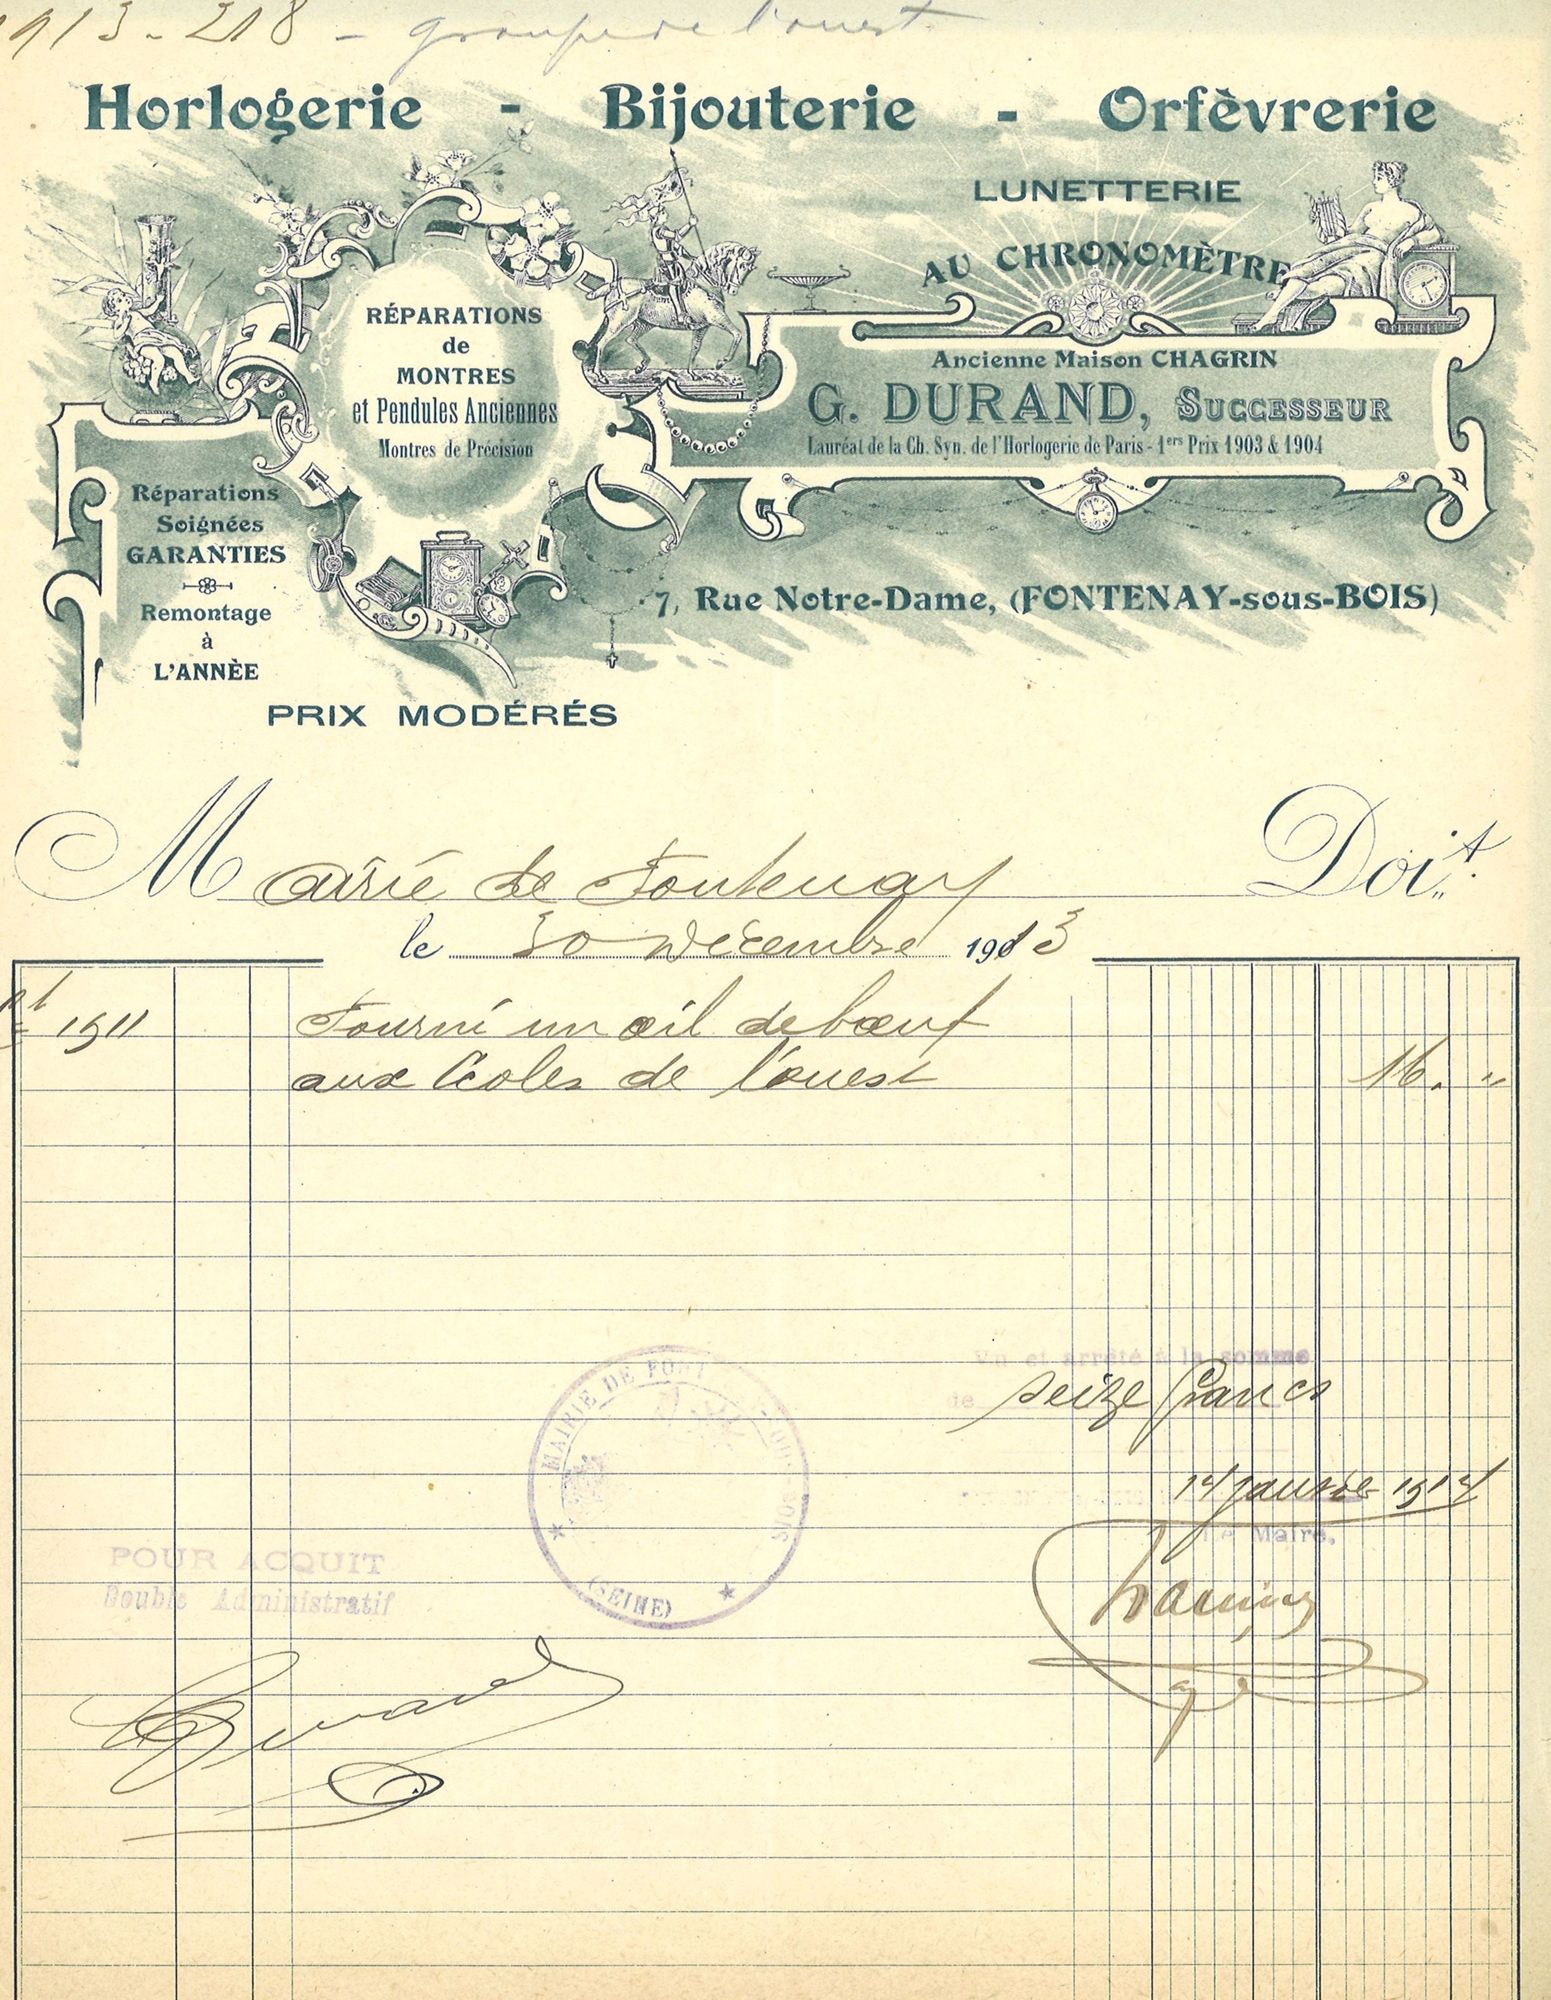 1913 - 218 - groupe de l'ouest
Horlogerie - Bijouterie - Orfèvrerie
LUNETTERIE
AU CHRONOMÈTRE
RÉPARATIONS
de
MONTRES
et Pendules Anciennes
Montres de Précision
Ancienne Maison CHAGRIN
G. DURAND, SUCCESSEUR
Lauréat de la Ch. Syn. de l'Horlogerie de Paris - 1ers Prix 1903 & 1904
Réparations
Soignées
GARANTIES
Remontage
à
L'ANNÈE
7, Rue Notre-Dame, (FONTENAY-sous-BOIS)
PRIX MODÉRÉS
Mairie de Fontenay Doit
le 30 Décembre 1913
1911 Fourni un œil de bœuf
aux Ecoles de l'ouest 16. "
Vu et arrêté à la somme
de seize francs
14 janvier 1914
Le Maire,
MAIRIE DE FONTENAY-SOUS-BOIS
(SEINE)
POUR ACQUIT
Double Administratif
GDurand